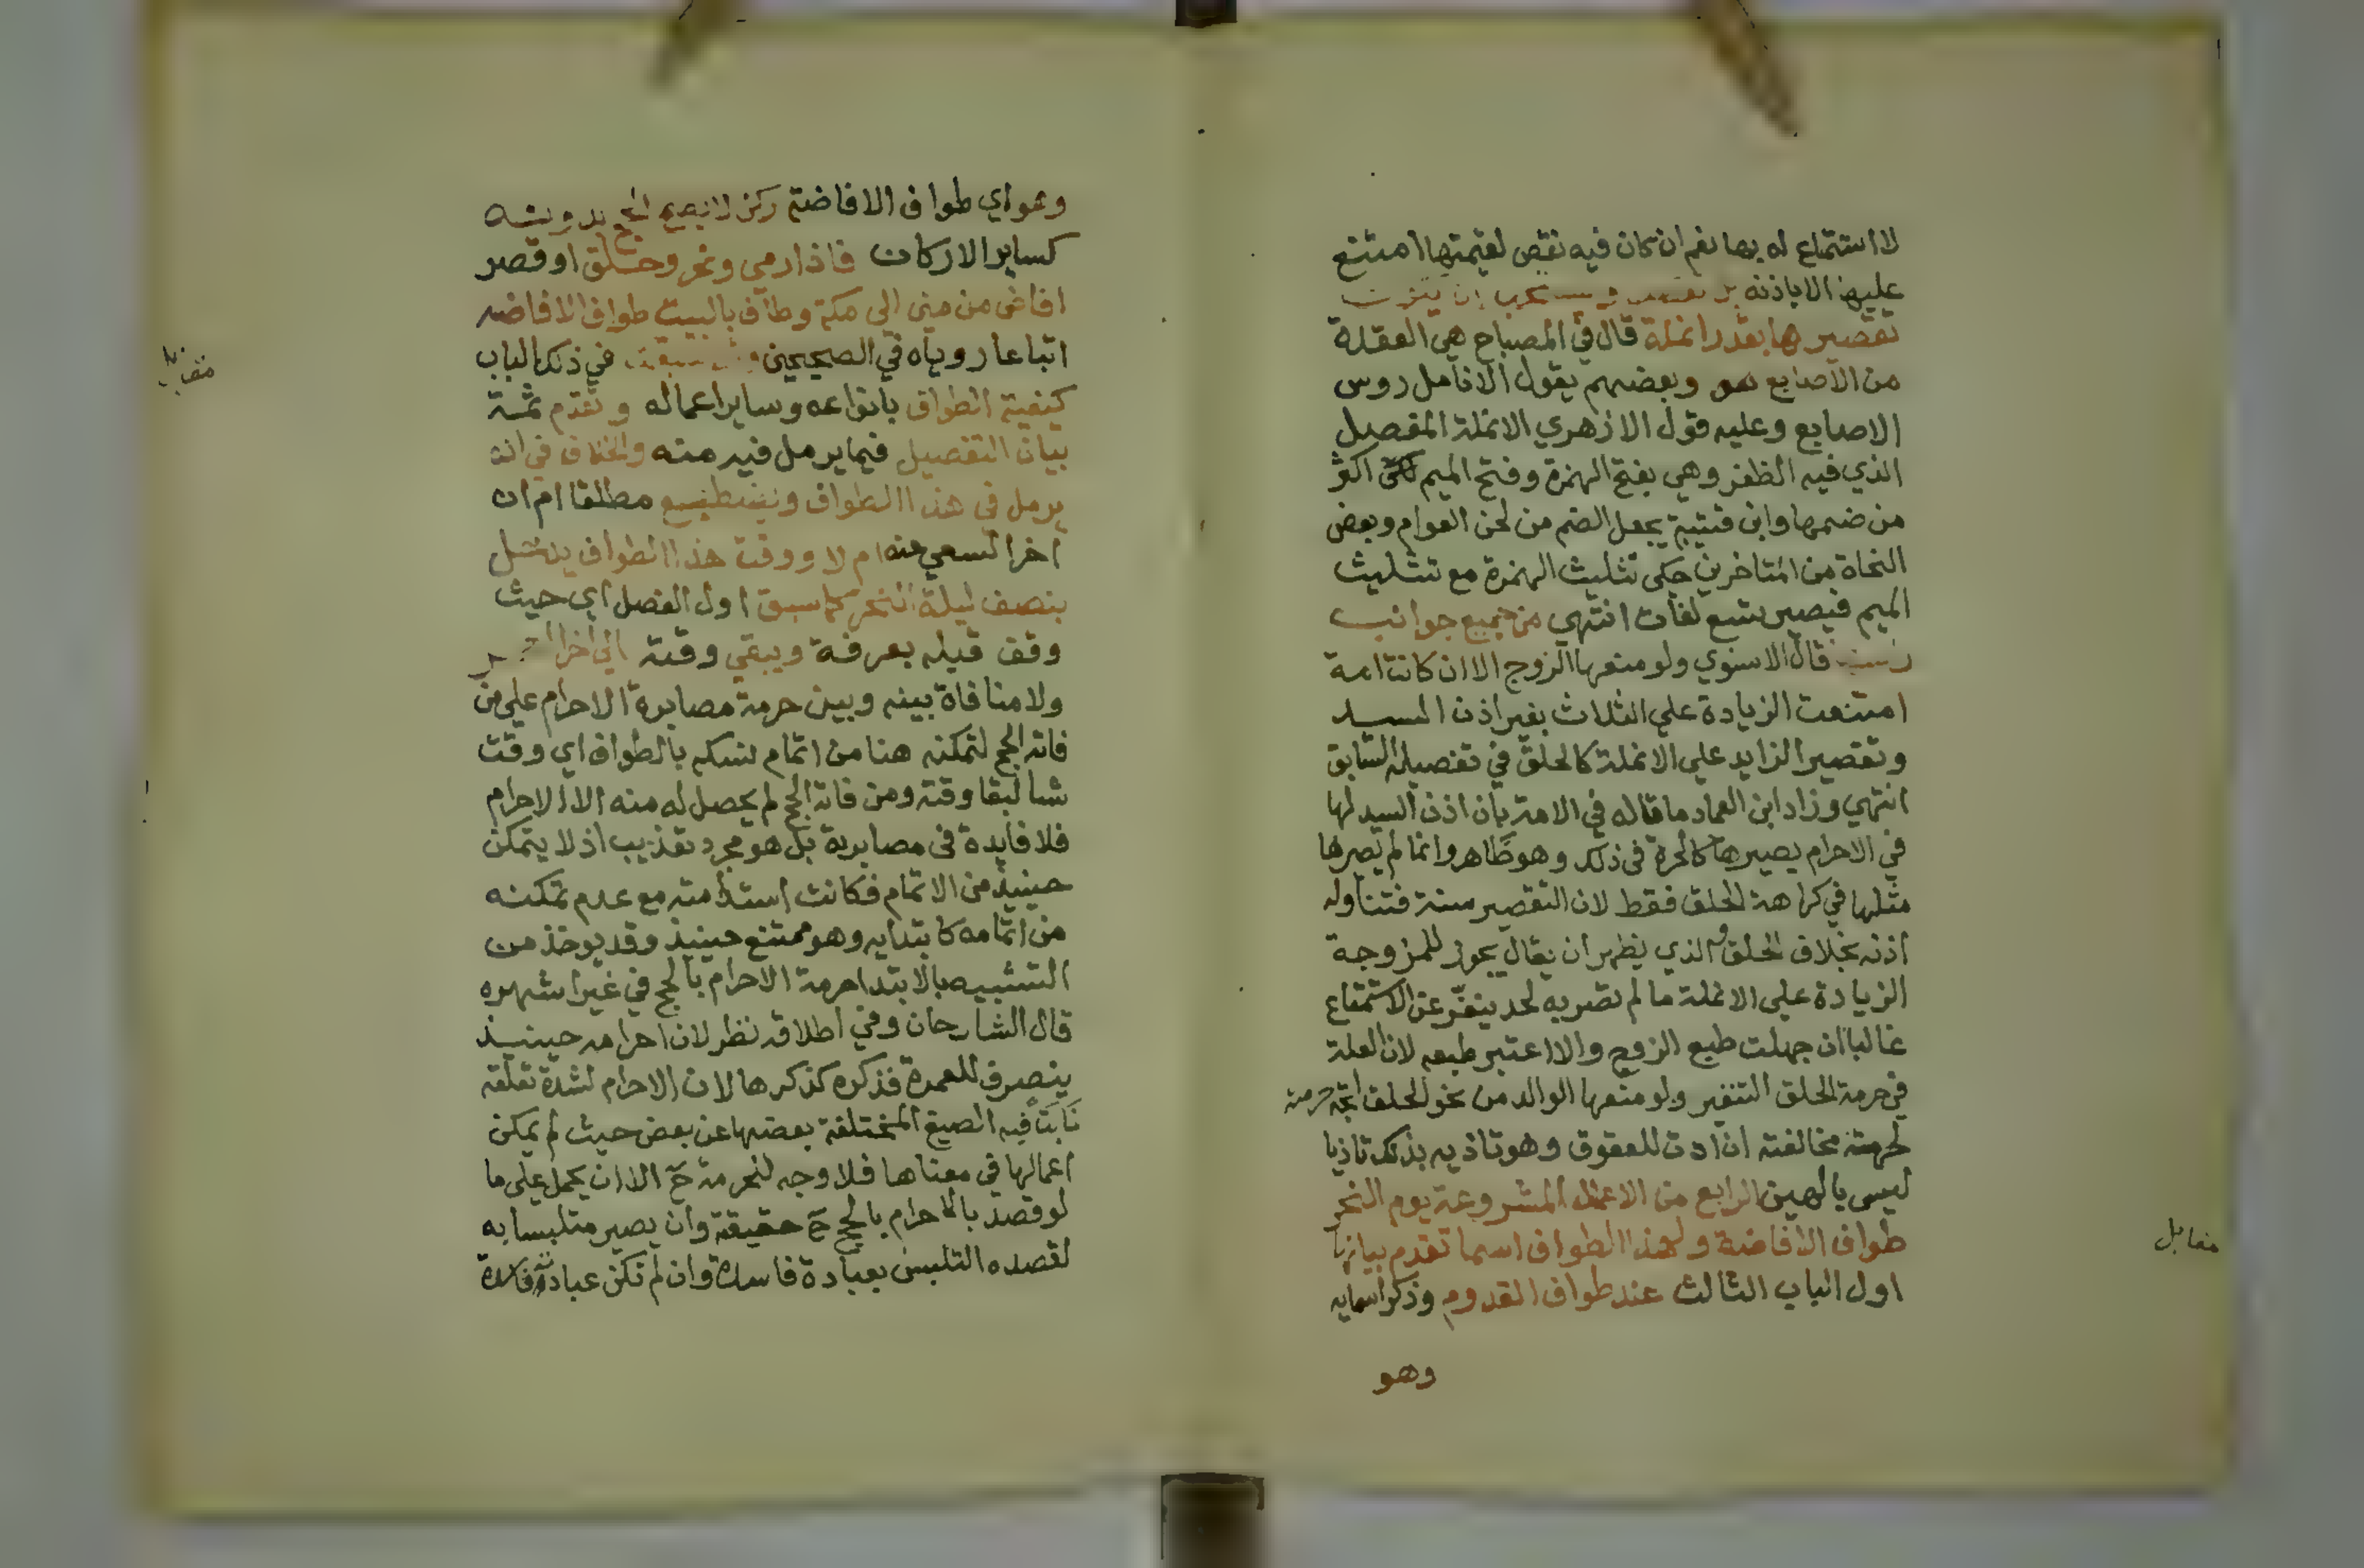 لا استمتاع له بها نعم ان كان فيه نقص لقيمتها امتنع
عليها الا باذنه بل تقصر ويستحب ان يكون
تقصيرها بقدر انملة قال في المصباح هي العقدة
من الاصابع هو وبعضهم يقول الانامل روس
الاصابع وعليه قول الازهري الانملة المفصل
الذي فيه الظفر وهي بفتح الهمزة وفتح الميم اكثر
من ضمها وابن قتيبة يجعل الضم من لحن العوام وبعض
النحاة من المتاخرين حكى تثليث الهمزة مع تثليث
الميم فيصير تسع لغات انتهي من جميع جوانب
قال الاسنوي ولو منعها الزوج الا ان كانت امة
امتنعت الزيادة علي الثلاث بغير اذن السيد
وتقصير الزايد علي الانملة كالحلق في تفصيله السابق
انتهي وزاد ابن العماد ما قاله في الامة بان اذن السيد لها
في الاحرام يصيرها كالحرة في ذلك وهو ظاهر وانما لم يصيرها
مثلها في كراهة الحلق فقط لان التقصير سنة فتناوله
اذنه بخلاف الحلق والذي يظهر ان يقال يجوز للمزوجة
الزيادة علي الانملة ما لم تضر به لحد ينفر عن الاستمتاع
غالبا ان جهلت طبع الزوج والا اعتبر طبعه لان العلة
في حرمة الحلق التنفير ولو منعها الوالد من نحو الحلق اتجه حرمته
لحرمة مخالفته ان ادت للعقوق وهو تاذيه بذلك تاذيا
ليس بالهين الرابع من الاعمال المشروعة يوم النحر
طواف الافاضة ولهذا الطواف اسما تقدم بيانها
اول الباب الثالث عند طواف القدوم وذكر اسمايه
وهو
مقابل
وهو اي طواف الافاضة ركن لا يصح الحج بدونه
كساير الاركان فاذا رمي ونحر وحلق او قصر
افاض من مني الي مكة وطاف بالبيت طواف الافاضه
اتباعا روياه في الصحيحين وقد سبقت في ذلك الباب
كيفية الطواف بانواعه وساير اعماله وتقدم ثمة
بيان التفصيل فيما يرمل فيه منه والخلاف في انه
يرمل في هذا الطواف ويضطبع مطلقا ام ان
اخر السعي عنه ام لا ووقت هذا الطواف يدخل
بنصف ليلة النحر كما سبق اول الفصل اي حيث
وقف قبله بعرفة ويبقي وقته الي اخر العمر
ولا منافاة بينه وبين حرمة مصابرة الاحرام علي من
فاته الحج لتمكنه هنا من اتمام نسكه بالطواف اي وقت
شا لبقا وقته ومن فاته الحج لم يحصل له منه الا الاحرام
فلا فايدة في مصابرته بل هو مجرد تعذيب اذ لا يتمكن
حينيذ من الاتمام فكانت استدامته مع عدم تمكنه
من اتمامه كابتدايه وهو ممتنع حينيذ وقد يوخذ من
التشبيه بالابتدا حرمة الاحرام بالحج في غير اشهره
قال الشارحان وفي اطلاقه نظر لان احرامه حينيذ
ينصرف للعمرة فذكره كذكرها لان الاحرام لشدة تعلقه
نابت فيه الصيغ المختلفة بعضها عن بعض حيث لم يمكن
اعمالها في معناها فلا وجه لتحرمة ح الا ان يحمل علي ما
لو قصد بالاحرام بالحج ح حقيقة وان يصير متلبسا به
لقصده التلبس بعبادة فاسدة وان لم تكن عبادته فاسدة
مقابل